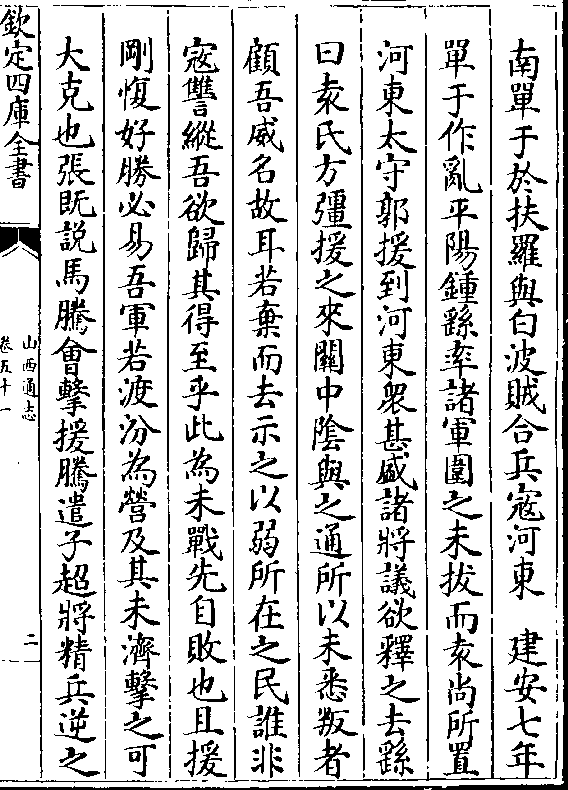 南單于於扶羅與白波賊合兵寇河東　建安七年
單于作亂平陽鍾繇率諸軍圍之未拔而袁尚所置
河東太守郭援到河東衆甚盛諸將議欲釋之去繇
曰袁氏方彊援之來關中陰與之通所以未悉叛者
顧吾威名故耳若棄而去示之以弱所在之民誰非
寇讐縱吾欲歸其得至乎此為未戰先自敗也且援
剛愎好勝必易吾軍若渡汾為營及其未濟擊之可
大克也張既說馬騰會擊援騰遣子超將精兵逆之
欽定四庫全書
山西通志
卷五十一
二